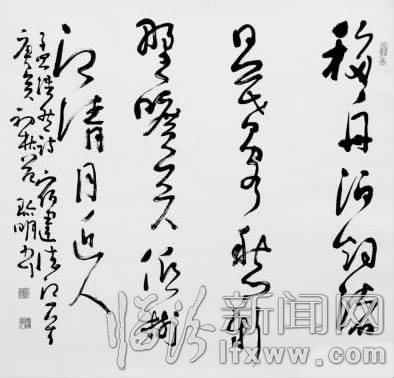 移舟泊烟渚
日暮客愁新
野曠天低樹
江清月近人
孟浩然詩宿建德江一首
庚寅初秋
临汾新闻网
lfxww.com